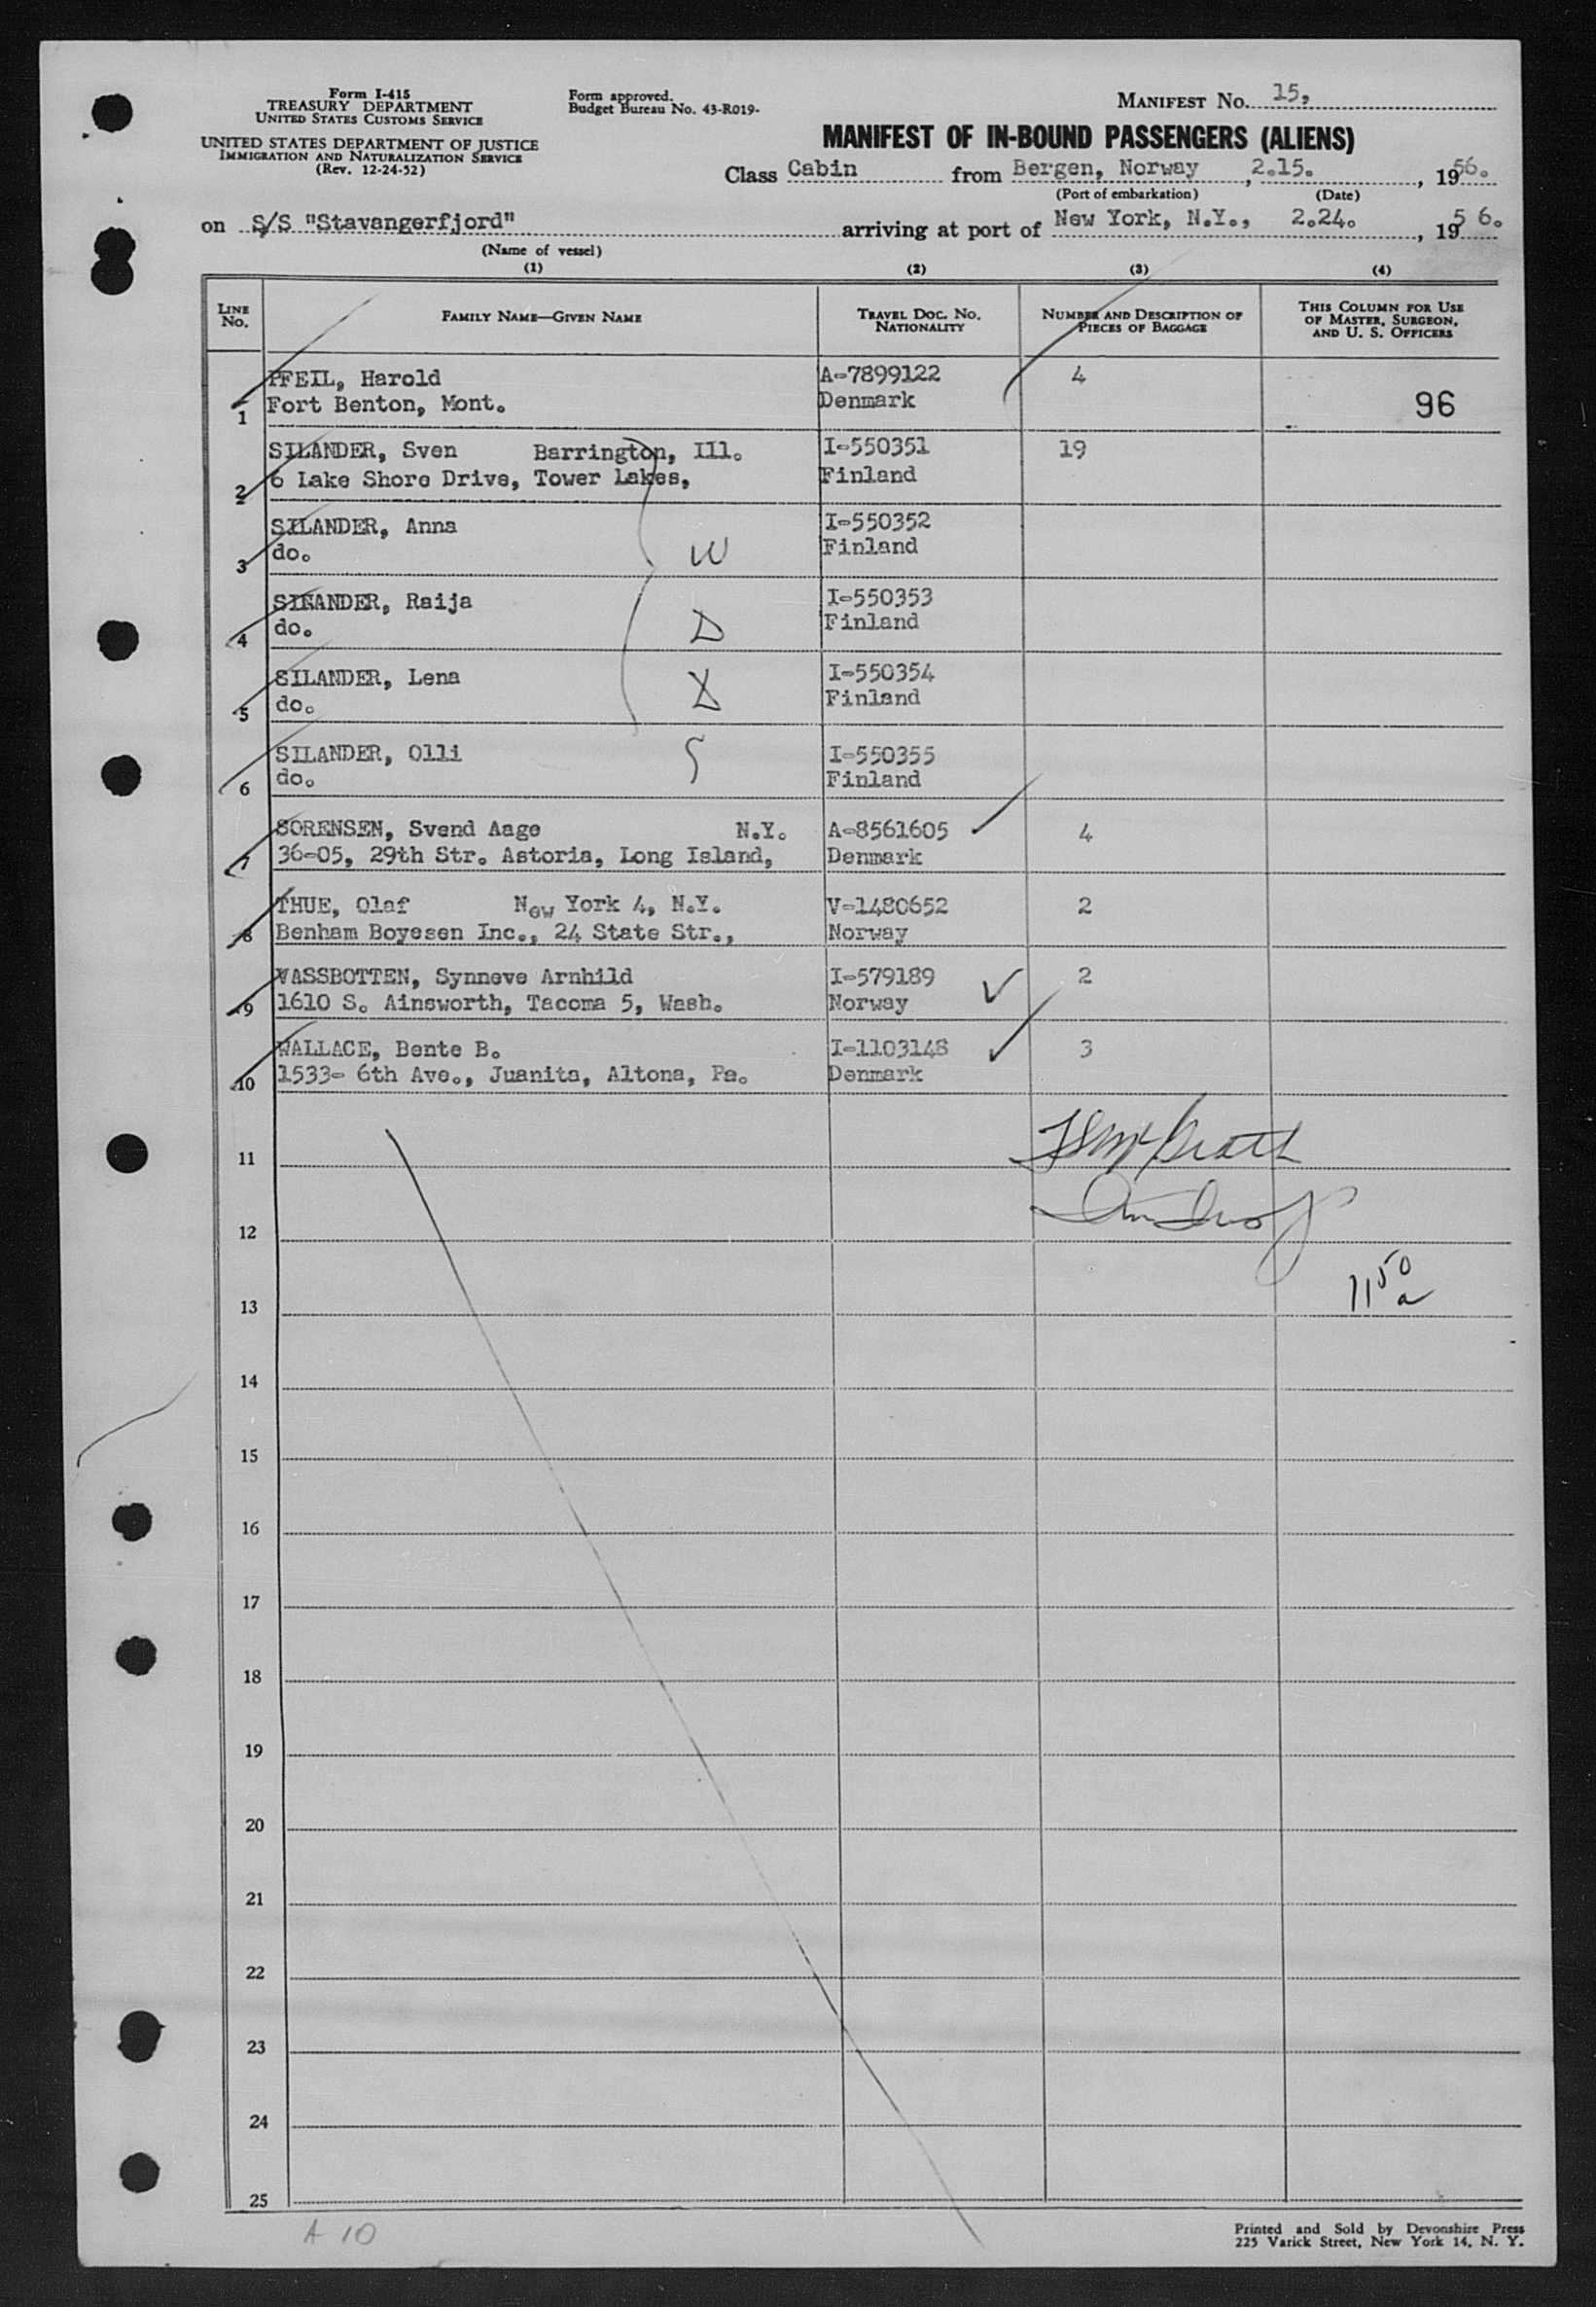 Form I-415
TREASURY DEPARTMENT
UNITED STATES CUSTOMS SERVICE
UNITED STATES DEPARTMENT OF JUSTICE
IMMIGRATION AND NATURALIZATION SERVICE
(Rev. 12-24-52)
Form approved.
Budget Bureau No. 43-R019-
MANIFEST No. 15,
MANIFEST OF IN-BOUND PASSENGERS (ALIENS)
Class Cabin from Bergen, Norway, 2.15., 1956.
(Port of embarkation) (Date)
on S/S "Stavangerfjord" arriving at port of New York, N.Y., 2.24., 195 6.
(Name of vessel)
(1) (2) (3) (4)
LINE No. FAMILY NAME—GIVEN NAME TRAVEL DOC. No. NATIONALITY NUMBER AND DESCRIPTION OF PIECES OF BAGGAGE THIS COLUMN FOR USE OF MASTER, SURGEON, AND U. S. OFFICERS
PFEIL, Harold A-7899122 4
1 Fort Benton, Mont. Denmark 96
SILANDER, Sven Barrington, Ill. I-550351 19
2 6 Lake Shore Drive, Tower Lakes, Finland
SILANDER, Anna I-550352
3 do. W Finland
SILANDER, Raija I-550353
4 do. D Finland
SILANDER, Lena I-550354
5 do. D Finland
SILANDER, Olli S I-550355
6 do. Finland
SORENSEN, Svend Aage N.Y. A-8561605 4
7 36-05, 29th Str. Astoria, Long Island, Denmark
THUE, Olaf New York 4, N.Y. V-1480652 2
8 Benham Boyesen Inc., 24 State Str., Norway
VASSBOTTEN, Synneve Arnhild I-579189 2
9 1610 S. Ainsworth, Tacoma 5, Wash. Norway
WALLACE, Bente B. I-1103148 3
10 1533- 6th Ave., Juanita, Altona, Pa. Denmark
11
12
13 11 50 a
14
15
16
17
18
19
20
21
22
23
24
25
A 10
Printed and Sold by Devonshire Press
225 Varick Street, New York 14, N. Y.